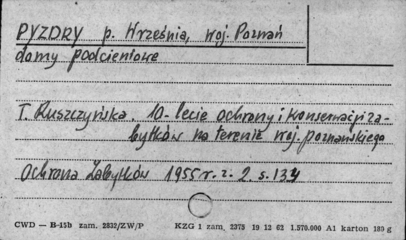 PYZDRY p. Września, woj. Poznań
domy podcieniowe
T. Ruszczyńska. 10-lecie ochrony i konserwacji za-
bytków na terenie woj. poznańskiego
Ochrona Zabytków 1955 r. z. 2 s. 134
CWD — B-15b zam. 2832/ZW/P KZG 1 zam. 2375 19 12 62 1.570.000 A1 karton 180 g